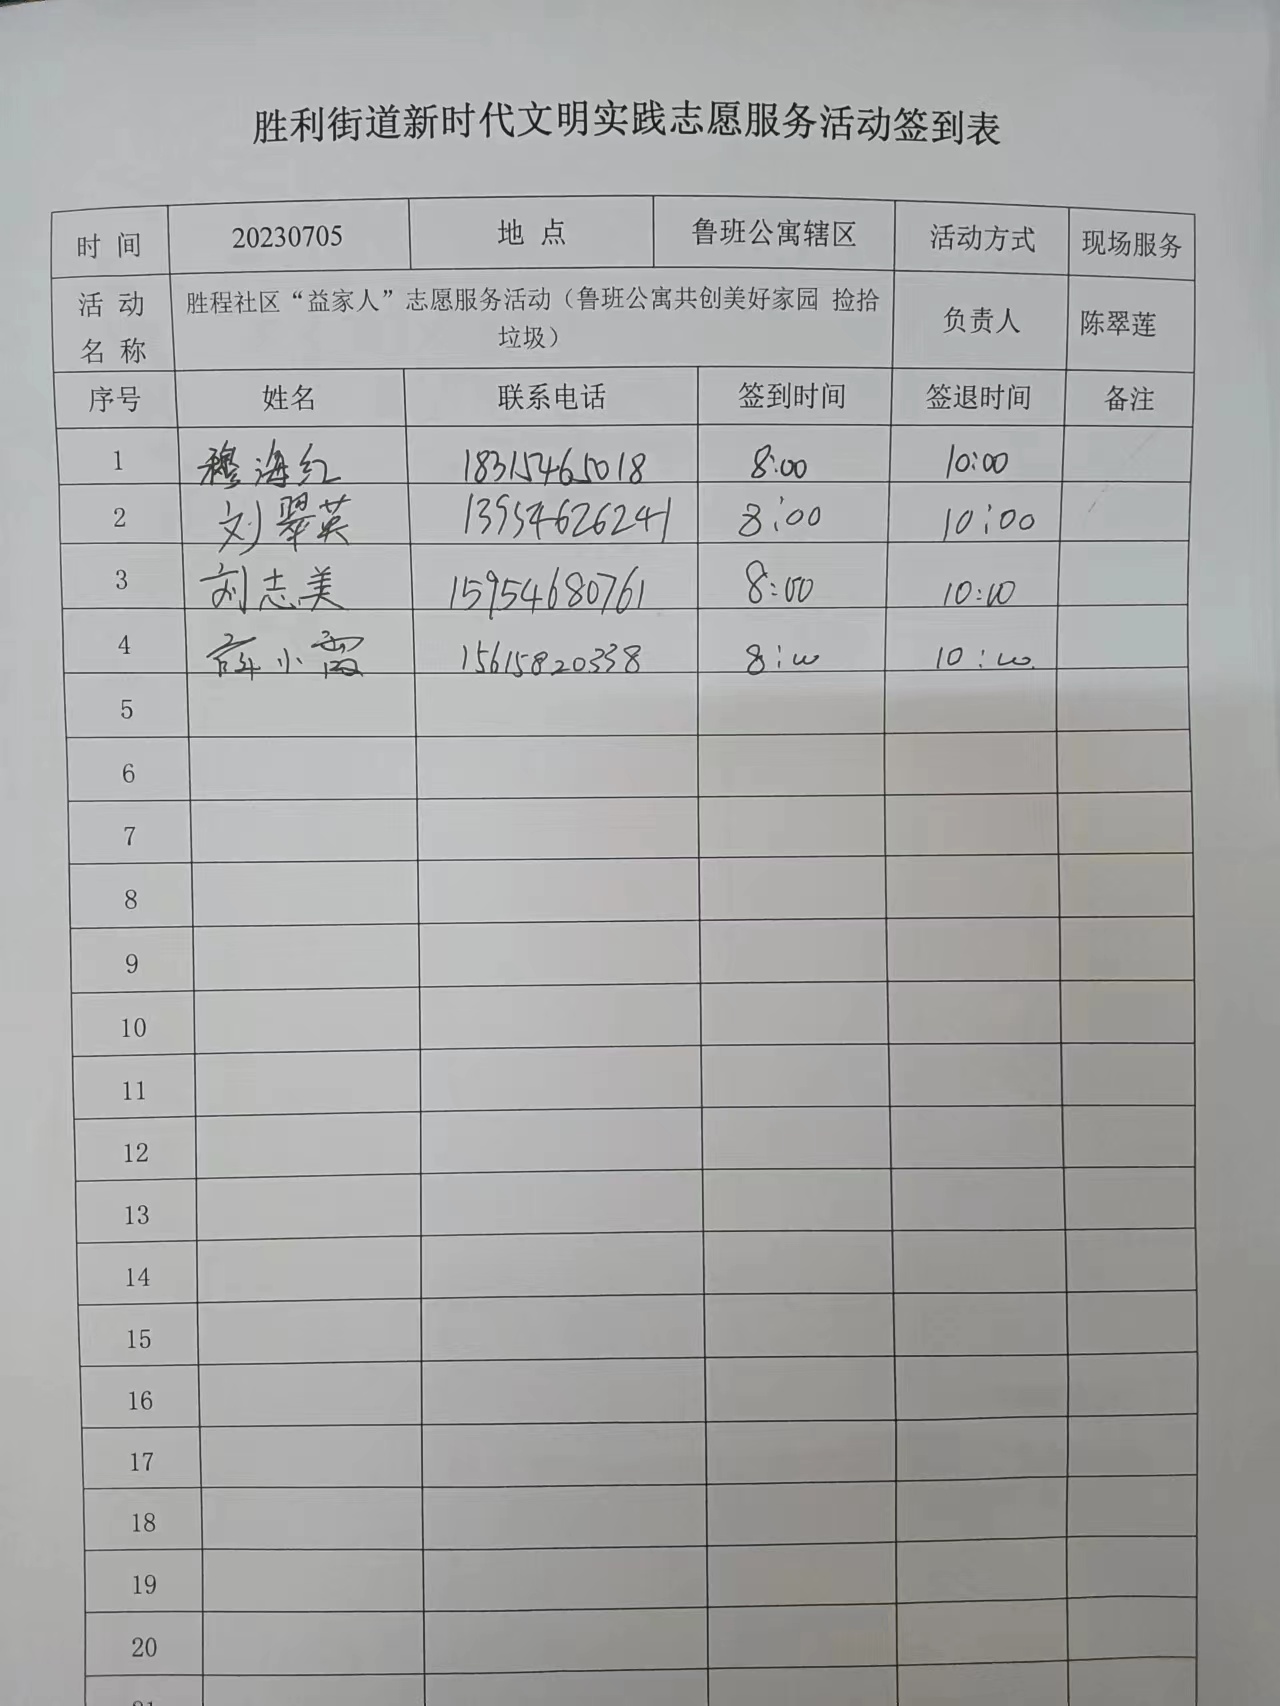 胜利街道新时代文明实践志愿服务活动签到表
时 间 20230705 地 点 鲁班公寓辖区 活动方式 现场服务
活 动 名 称 胜程社区“益家人”志愿服务活动（鲁班公寓共创美好家园 捡拾 负责人 陈翠莲
垃圾）
序号 姓名 联系电话 签到时间 签退时间 备注
1 穆海红 18315465018 8:00 10:00
2 刘翠英 13954626241 8:00 10:00
3 刘志美 15954680761 8:00 10:00
4 薛小霞 15615820338 8:00 10:00
5
6
7
8
9
10
11
12
13
14
15
16
17
18
19
20
21